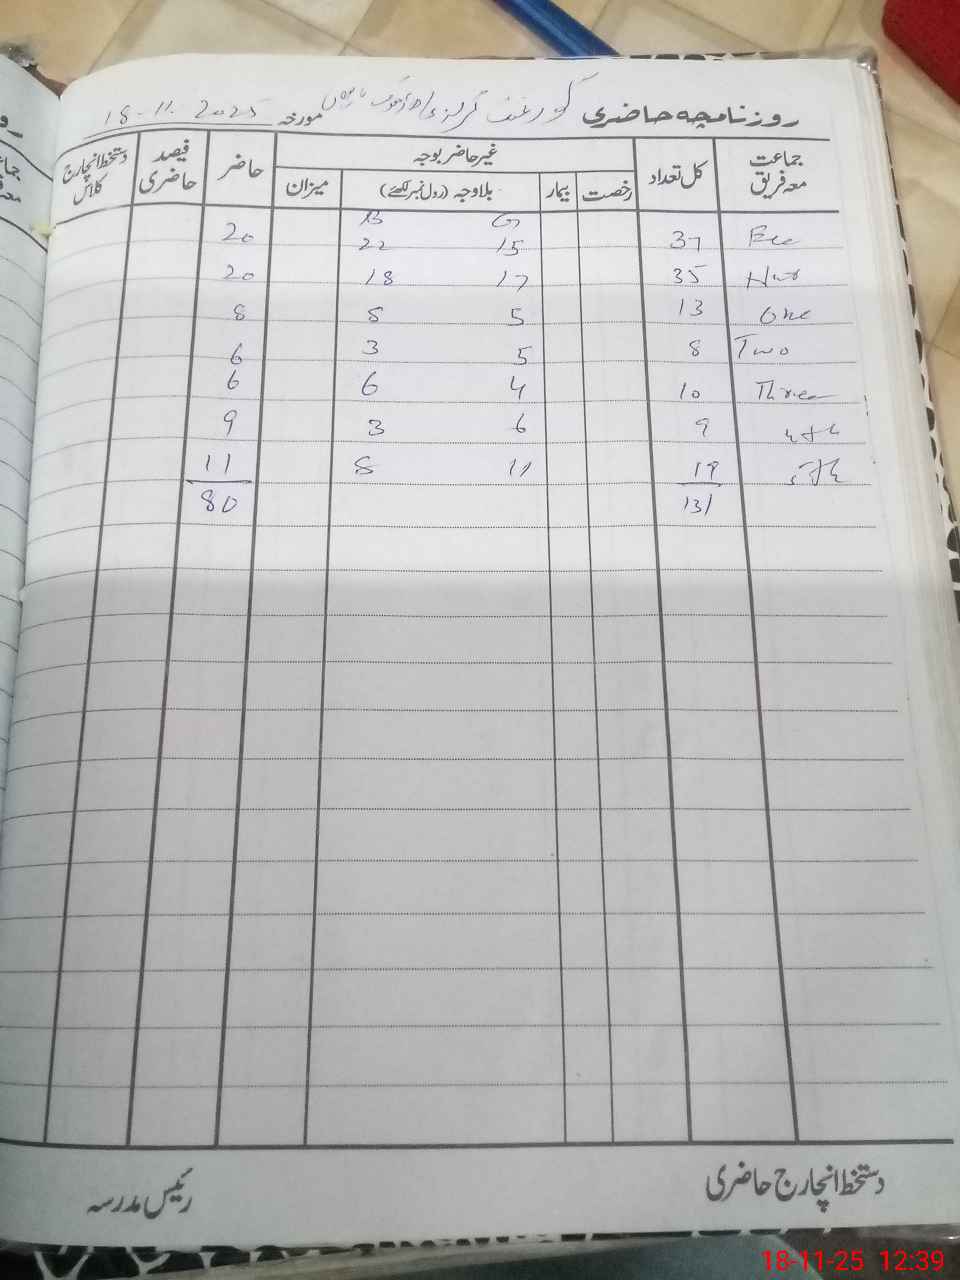 روزنامچہ حاضری گورنمنٹ گرلز مورخہ 18-11-2025
جماعت معہ فریق کل تعداد غیر حاضر بوجہ حاضر فیصد حاضری دستخط انچارج کلاس
رخصت بیمار بلاوجہ (رول نمبر لکھئے) میزان
G B
Ece 37 15 22 20
35 17 18 20
One 13 5 8 8
Two 8 5 3 6
Three 10 4 6 6
4th 9 6 3 9
5th 19 11 8 11
131 80
دستخط انچارج حاضری رئیس مدرسہ
18-11-25 12:39